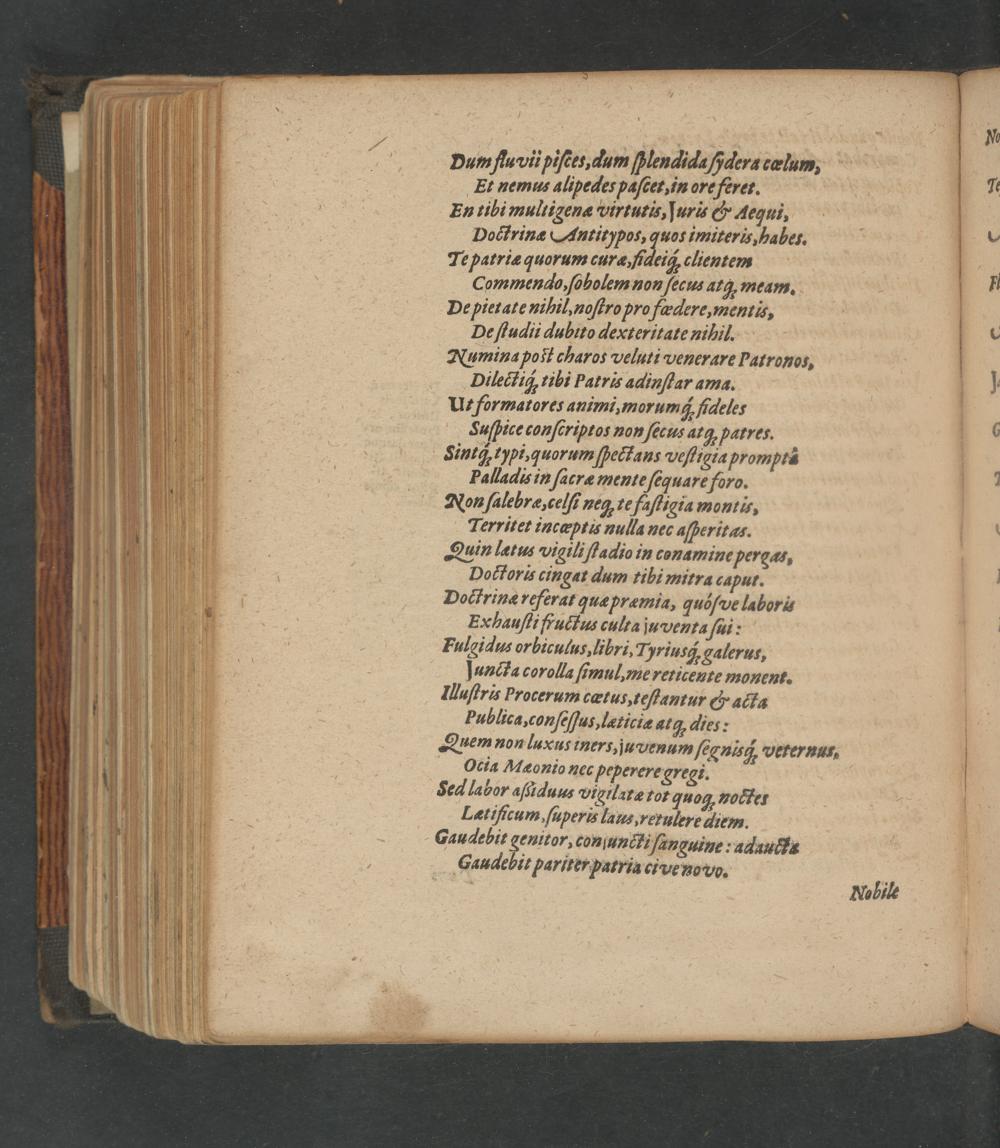 Dum fluvii pisces, dum splendida sydera cœlum,
Et nemus alipedes pascet, in ore feret.
En tibi multigenæ virtutis, Juris & Aequi,
Doctrinæ Antitypos, quos imiteris, habes.
Te patriæ quorum curæ, fideiq́; clientem
Commendo, sobolem non secus atq; meam.
De pietate nihil, nostro pro fœdere, mentis,
De studii dubito dexteritate nihil.
Numina post charos veluti venerare Patronos,
Dilectiq́; tibi Patris adinstar ama.
Ut formatores animi, morumq́; fideles
Suspice conscriptos non secus atq; patres.
Sintq́; typi, quorum spectans vestigia promptâ
Palladis in sacræ mente sequare foro.
Non salebræ, celsi neq; te fastigia montis,
Territet incœptis nulla nec asperitas.
Quin lætus vigili stadio in conamine pergas,
Doctoris cingat dum tibi mitra caput.
Doctrinæ referat quæ præmia, quósve laboris
Exhausti fructus culta juventa sui:
Fulgidus orbiculus, libri, Tyriusq́; galerus,
Juncta corolla simul, me reticente monent.
Illustris Procerum cœtus, testantur & acta
Publica, consessus, læticiæ atq; dies:
Quem non luxus iners, juvenum segnisq́; veternus,
Ocia Mæonio nec peperere gregi.
Sed labor assiduus vigilatæ tot quoq; noctes
Lætificum, superis laus, retulere diem.
Gaudebit genitor, conjuncti sanguine: adaucta
Gaudebit pariter patria cive novo.
Nobile
No
Te
Fl